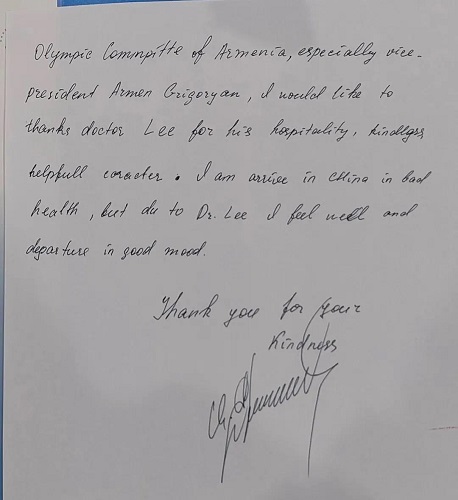 Olympic Committe of Armenia, especially vice-
president Armen Grigoryan, I would like to
thanks doctor Lee for his hospitality, kindness,
helpfull coracter. I am arrive in China in bad
health, but du to Dr. Lee I feel well and
departure in good mood.
Thank you for your
Kindness